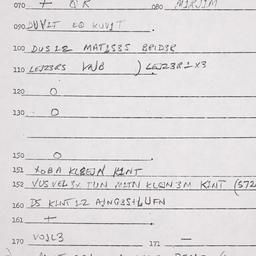 070 + 080 MIRJIM
090 DUVLT EQ KUVIT
100 DUS12 MAT1S3S BRID3R
110 LEJZ3RS VAJB ) LEJZ3R1X3
120 O
130 O
150 O
151 XOBA KLEJN KINT
152 VUS VEL3V TUN MITN KLEJN3M KINT (572
160 DS KINT 12 AJNG3SHLUFN
161 +
170 VOJL3 171 —